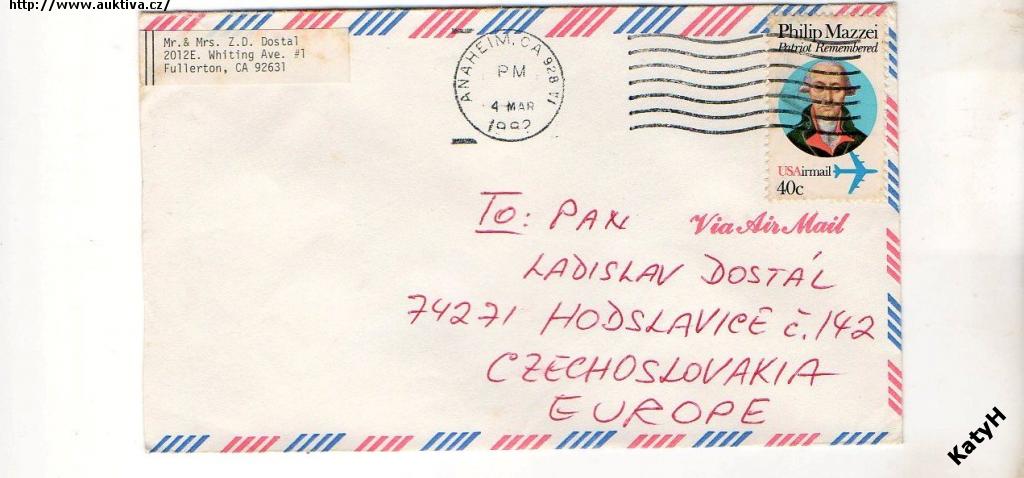 http://www.auktiva.cz/
Mr.& Mrs. Z.D. Dostal
2012E. Whiting Ave. #1
Fullerton, CA 92631
ANAHEIM, CA 928
PM
4 MAR
Philip Mazzei
Patriot Remembered
USAirmail
40c
To: PAN
Via Air Mail
LADISLAV DOSTÁL
74271 HODSLAVICE č.142
CZECHOSLOVAKIA
EUROPE
KatyH